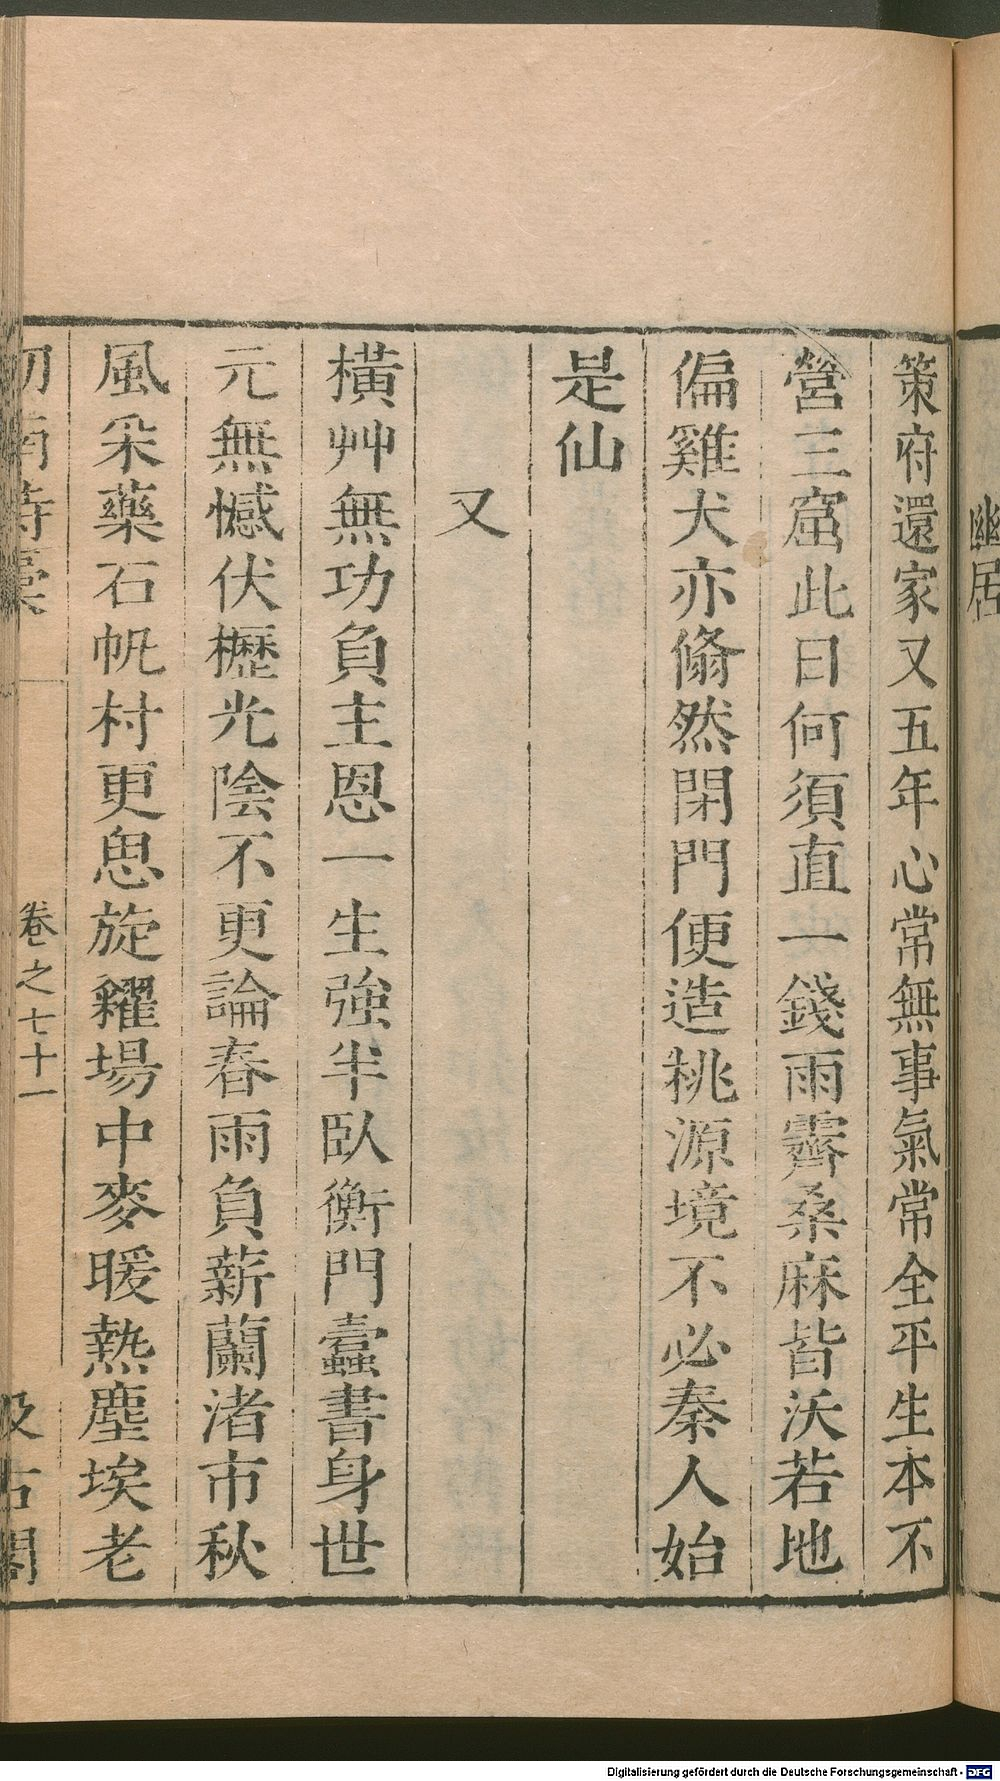 幽居
策府還家又五年心常無事氣常全平生本不
營三窟此日何須直一錢雨霽桑麻皆沃若地
偏雞犬亦翛然閉門便造桃源境不必秦人始
是仙
又
橫艸無功負主恩一生強半臥衡門蠹書身世
元無憾伏櫪光陰不更論春雨負薪蘭渚市秋
風采藥石帆村更思旋糴場中麥暖熱塵埃老
劍南詩稾
卷之七十一
汲古閣
Digitalisierung gefördert durch die Deutsche Forschungsgemeinschaft - DFG